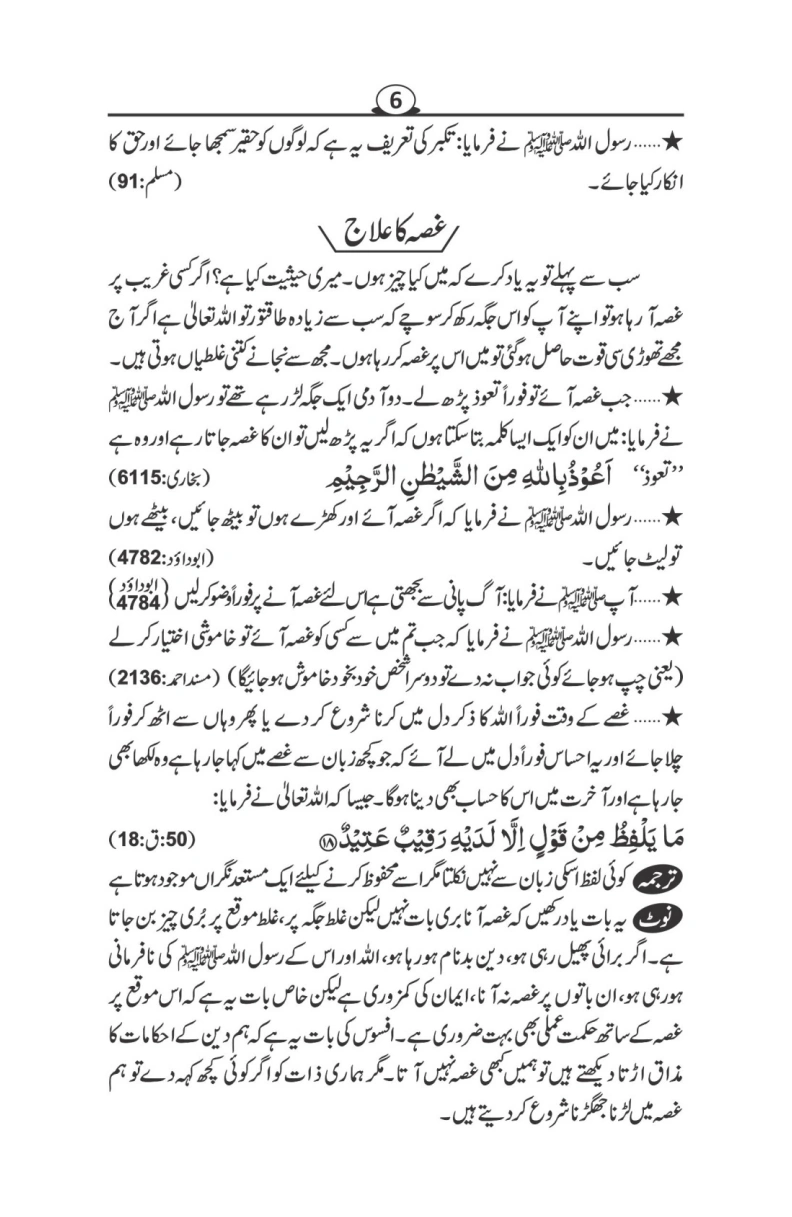 6
★...... رسول اللہ ﷺ نے فرمایا: تکبر کی تعریف یہ ہے کہ لوگوں کو حقیر سمجھا جائے اور حق کا
انکار کیا جائے۔ (مسلم:91)
غصہ کا علاج
سب سے پہلے تو یہ یاد کرے کہ میں کیا چیز ہوں۔ میری حیثیت کیا ہے؟ اگر کسی غریب پر
غصہ آ رہا ہو تو اپنے آپ کو اس جگہ رکھ کر سوچے کہ سب سے زیادہ طاقتور تو اللہ تعالیٰ ہے اگر آج
مجھے تھوڑی سی قوت حاصل ہو گئی تو میں اس پر غصہ کر رہا ہوں۔ مجھ سے نجانے کتنی غلطیاں ہوتی ہیں۔
★...... جب غصہ آئے تو فوراً تعوذ پڑھ لے۔ دو آدمی ایک جگہ لڑ رہے تھے تو رسول اللہ ﷺ
نے فرمایا: میں ان کو ایک ایسا کلمہ بتا سکتا ہوں کہ اگر یہ پڑھ لیں تو ان کا غصہ جاتا رہے اور وہ ہے
”تعوذ“ اَعُوْذُ بِاللهِ مِنَ الشَّيْطٰنِ الرَّجِيْمِ (بخاری:6115)
★...... رسول اللہ ﷺ نے فرمایا کہ اگر غصہ آئے اور کھڑے ہوں تو بیٹھ جائیں، بیٹھے ہوں
تو لیٹ جائیں۔ (ابوداؤد:4782)
★...... آپ ﷺ نے فرمایا: آگ پانی سے بجھتی ہے اس لئے غصہ آنے پر فوراً وضو کر لیں {ابوداؤد 4784}
★...... رسول اللہ ﷺ نے فرمایا کہ جب تم میں سے کسی کو غصہ آئے تو خاموشی اختیار کر لے
(یعنی چپ ہو جائے کوئی جواب نہ دے تو دوسرا شخص خود بخود خاموش ہو جائیگا) (مسند احمد:2136)
★...... غصے کے وقت فوراً اللہ کا ذکر دل میں کرنا شروع کر دے یا پھر وہاں سے اٹھ کر فوراً
چلا جائے اور یہ احساس فوراً دل میں لے آئے کہ جو کچھ زبان سے غصے میں کہا جا رہا ہے وہ لکھا بھی
جا رہا ہے اور آخرت میں اس کا حساب بھی دینا ہوگا۔ جیسا کہ اللہ تعالیٰ نے فرمایا:
مَا يَلْفِظُ مِنْ قَوْلٍ اِلَّا لَدَيْهِ رَقِيْبٌ عَتِيْدٌ ۝۱۸ (50:ق:18)
ترجمہ کوئی لفظ اسکی زبان سے نہیں نکلتا مگر اسے محفوظ کرنے کیلئے ایک مستعد نگراں موجود ہوتا ہے
نوٹ یہ بات یاد رکھیں کہ غصہ آنا بری بات نہیں لیکن غلط جگہ پر، غلط موقع پر بُری چیز بن جاتا
ہے۔ اگر برائی پھیل رہی ہو، دین بدنام ہو رہا ہو، اللہ اور اس کے رسول اللہ ﷺ کی نافرمانی
ہو رہی ہو، ان باتوں پر غصہ نہ آنا، ایمان کی کمزوری ہے لیکن خاص بات یہ ہے کہ اس موقع پر
غصہ کے ساتھ حکمت عملی بھی بہت ضروری ہے۔ افسوس کی بات یہ ہے کہ ہم دین کے احکامات کا
مذاق اڑتا دیکھتے ہیں تو ہمیں کبھی غصہ نہیں آتا۔ مگر ہماری ذات کو اگر کوئی کچھ کہہ دے تو ہم
غصہ میں لڑنا جھگڑنا شروع کر دیتے ہیں۔